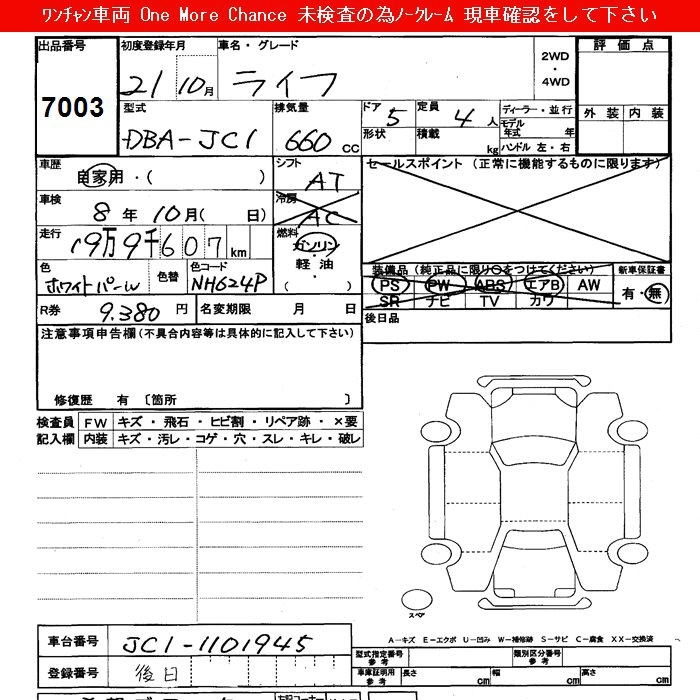 ﾜﾝﾁｬﾝ車両 One More Chance 未検査の為ﾉｰｸﾚｰﾑ 現車確認をして下さい
出品番号 初度登録年月 車名・グレード 2WD・4WD 評価点
7003 21 10月 ライフ 外装 内装
型式 排気量 ドア 5 定員 4人 ディーラー・並行
DBA-JC1 660cc 形状 積載 kg モデル年式 年 ハンドル 左・右
車歴 シフト セールスポイント (正常に機能するものに限ります)
自家用・( ) AT
車検 冷房
8年 10月( 日) AC
走行 燃料
19万9千607km ガソリン
色 色替 色コード 軽油 装備品 (純正品に限り○をつけてください) 新車保証書
ホワイトパール NH624P ( ) PS PW ABS エアB AW 有・無
SR ナビ TV カワ
R券 9.380円 名変期限 月 日 後日品
注意事項申告欄(不具合内容等は具体的に記入して下さい)
修復歴 有 〔箇所 〕
検査員 FW キズ・飛石・ヒビ割・リペア跡・×要
記入欄 内装 キズ・汚レ・コゲ・穴・スレ・キレ・破レ
スペア
A-キズ E-エクボ U-凹み W-補修跡 S-サビ C-腐食 XX-交換済
車台番号 JC1-1101945 型式指定番号 参考 類別区分番号 参考
登録番号 後日 車庫証明用 参考 長さ cm 幅 cm 高さ cm